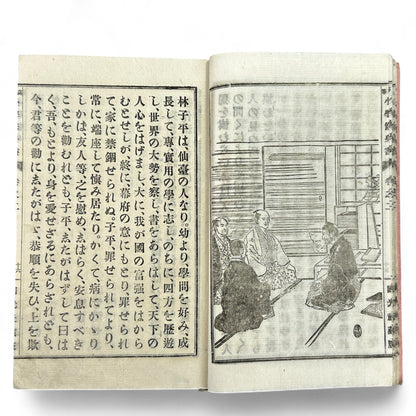 林子平は、仙臺の人なり幼より學問を好み、成
長して、專、實用の學に志し、のちに、四方を歷遊
し、世界の大勢を察し、書をあらはして、天下の
人心をはげまし、大に、我が國の富强をはから
むとせしが、終に、幕府の意にもとり、罪せられ
て、家に禁錮せられぬ、子平、罪せられてより、
常に、端座して悔み居たり、かくて、病にかゝり
しかは、友人等、之を慰め、まゝはらく、安息すべき
ことを勸むれども、子平、ゑたがはずして曰は
く、吾もとより、身を愛せざるにあらざれども、
今、君等の勸にゑたがはゞ、恭順を失ひ、上を欺